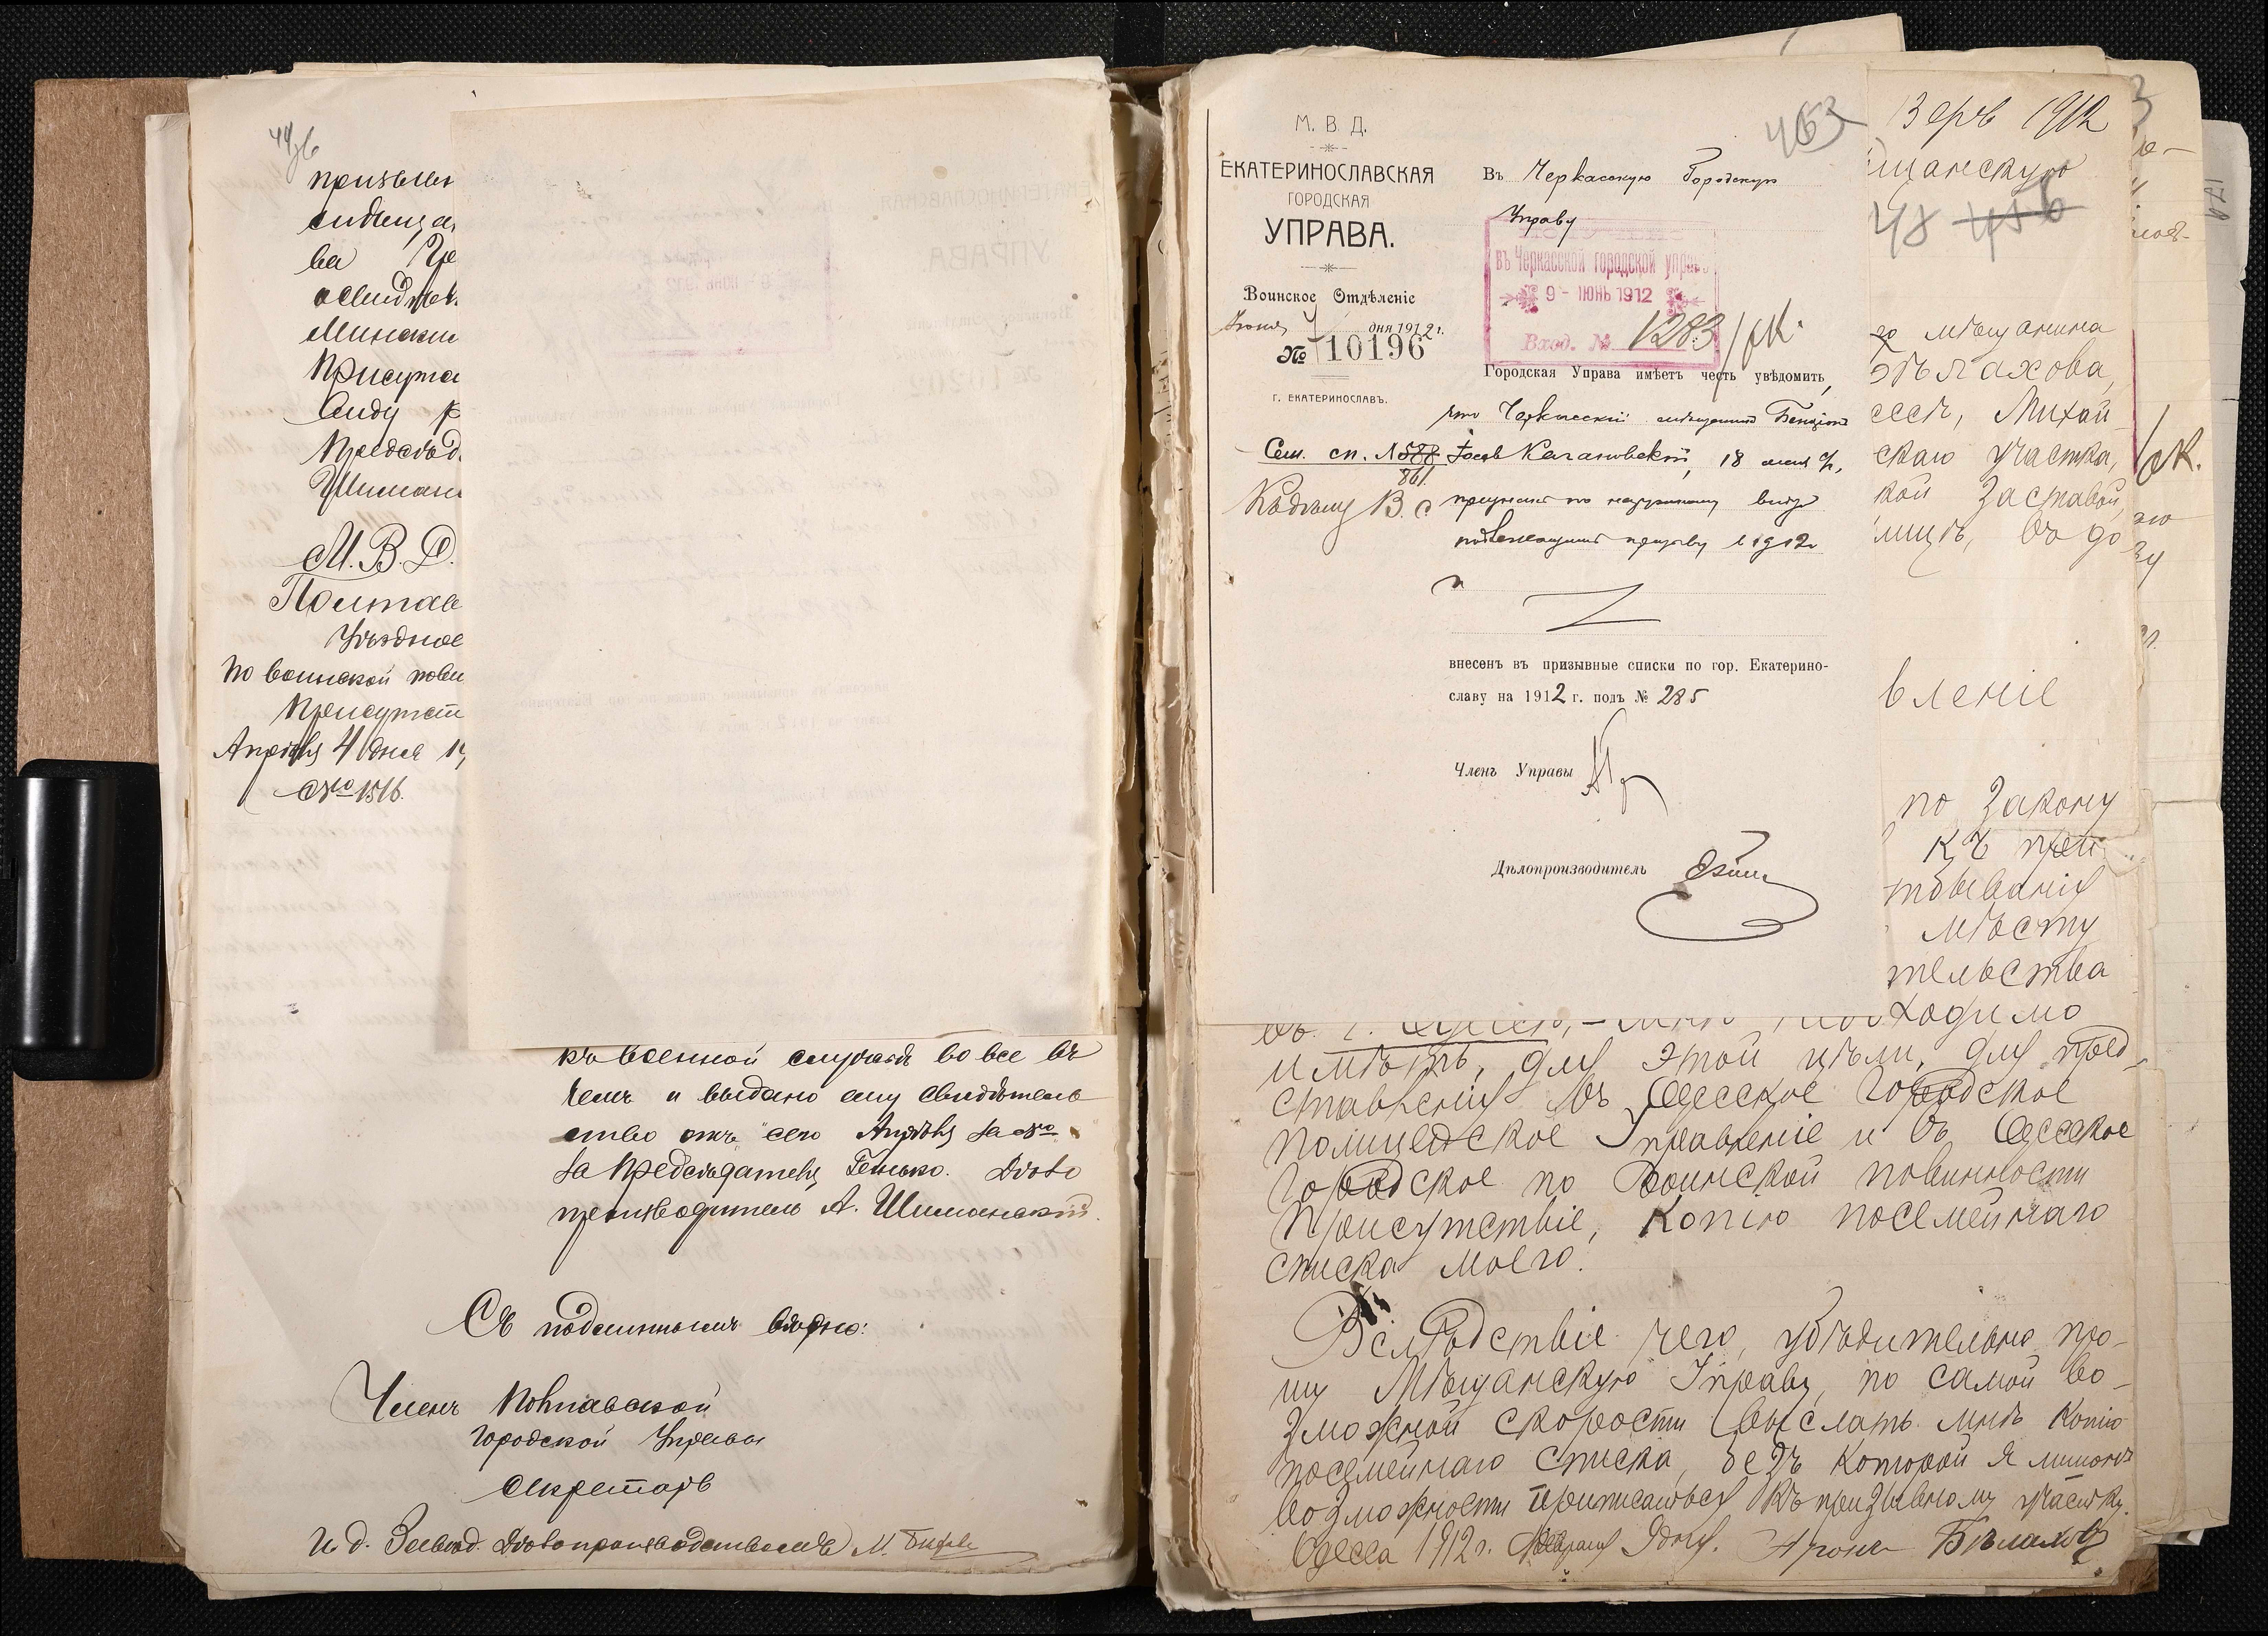 призыв
ва
Присут
М. В. Д.
Полтав
Уѣздное
по воинской пови
Присутст
Апрѣля 4 дня 19
№ 1516.
въ военной службѣ во все вѣ
чемъ и выдано ему свидѣтель
ство отъ сего Апрѣля за №
За Предсѣдателя Генько. Дѣло
производитель А. Шиманскій.
Съ подлиннымъ вѣрно:
Членъ Полтавской
Городской Управы
Секретарь
И. д. Завѣд. Дѣлопроизводствомъ М.
М. В. Д.
ЕКАТЕРИНОСЛАВСКАЯ
ГОРОДСКАЯ
УПРАВА.
Воинское Отдѣленіе
Іюня 4 дня 1912 г.
№ 10196
Г. ЕКАТЕРИНОСЛАВЪ.
Сем. сп. № 588
861
463
Въ Черкасскую Городскую
Управу
въ Черкасской городской управѣ
9 - ІЮНЬ 1912
Вход. № 1283
Городская Управа имѣетъ честь увѣдомить,
что Черкасскій мѣщанинъ Бенціонъ
Іосевъ Кагановскій, 18
по наружному виду
подлежащимъ призыву въ 1912
г.
внесенъ въ призывные списки по гор. Екатерино-
славу на 1912 г. подъ № 285
Членъ Управы
Дѣлопроизводитель
1912
щанскую
48 456
го мѣщанина
Бѣлахова,
ессѣ, Михай
скаго участка,
кой заставой,
лицѣ, въ до
вленіе
по закону
къ при
тбыванія
мѣсту
тельства
ходимо
имѣть, для этой цѣли, для пред-
ставленія въ Одесское Городское
Полицейское Управленіе и въ Одесское
Городское по воинской повинности
Присутствіе, копію посемейнаго
списка моего.
Вслѣдствіе чего, убѣдительно про-
шу Мѣщанскую Управу, по самой во-
зможной скорости выслать мнѣ копію
посемейнаго списка, безъ которой я лишонъ
возможности приписаться къ призывному участку.
Одесса 1912 г. Февраля 9 дня. Аронъ Бѣлаховъ